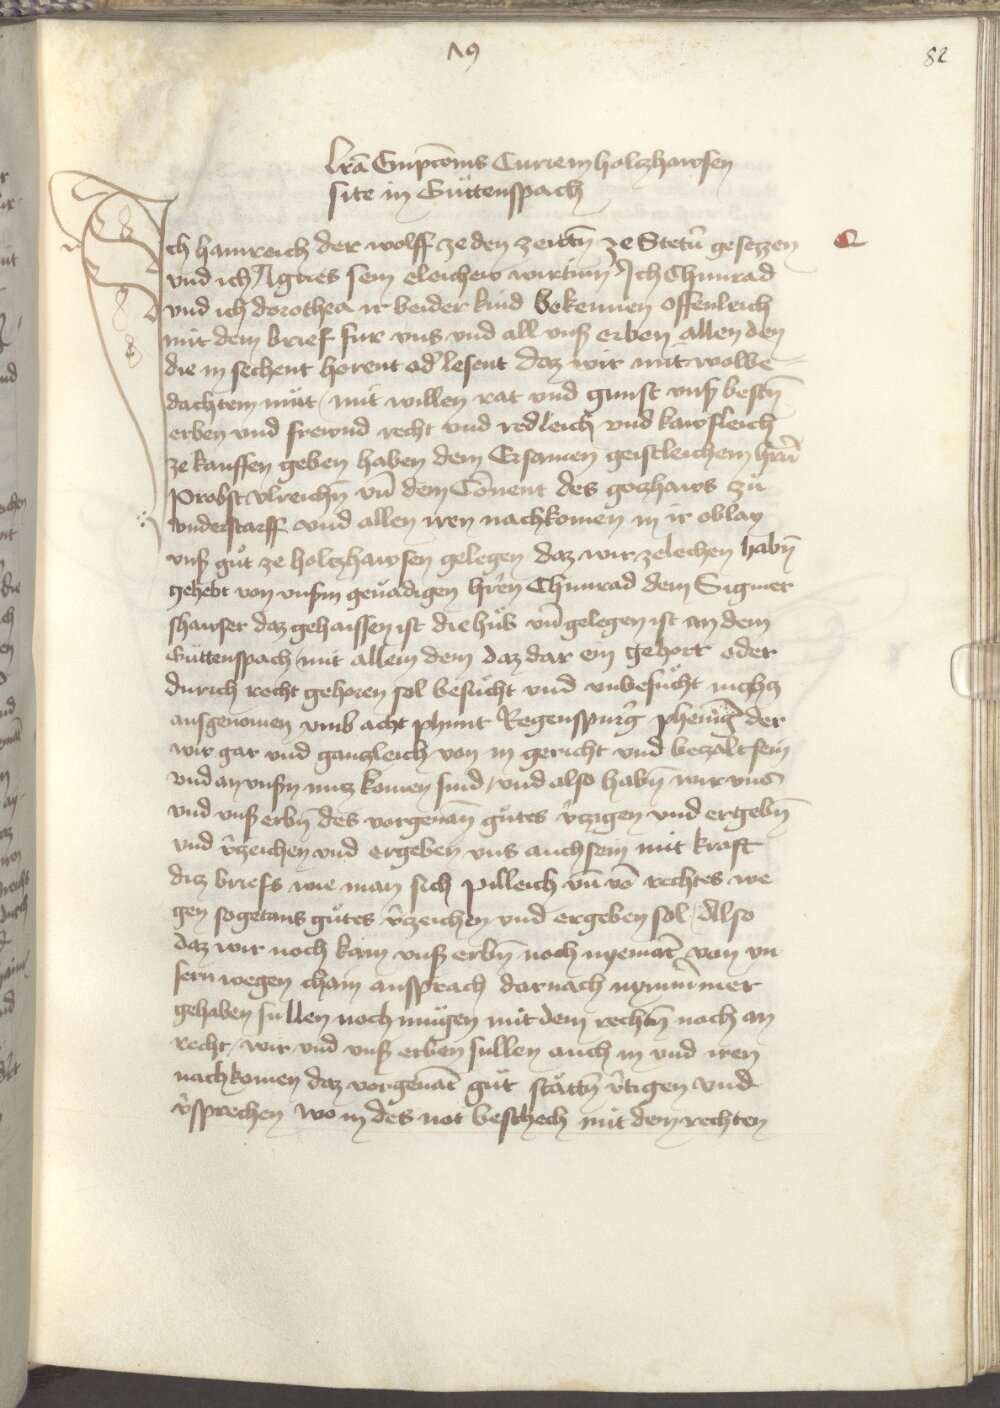 Λ9
82
Lrā Empcōnis Curie in holczhawsen
site in Guͤttenspach
Ich hainreich der wolff ze den zeittn̄ ze Stetn̄ gesezzen
vnd ich Agnes sein eleichew wirtinn Ich Chunrad
vnd ich dorothea ir beider kind Bekennen offenleich
mit dem brief fur vns vnd all vnß erben allen den
die in sechent horent od̓ lesent daz wir mit wolbe-
dachtem mut mit willen rat vnd gunst vnß bestn̄
erben vnd frewnd recht vnd redleich vnd kawfleich
ze kauffen geben haben dem Ersamen geistleichem hrn̄
Probst vlreichn̄ vn̄ dem Conuent des goczhaws zuͦ
vnderstarff vnd allen iren nachkomen in ir oblay
vnß guͦt ze holczhawsen gelegen daz wir ze lechen habn̄
gehebt von vnßm genadigen hren̄ Chunrad dem Sigmer
shawser daz gehaissen ist die huͦb vn̄ gelegen ist an dem
Guttenspach mit allem dem daz dar ein gehort oder
durich recht gehoren sol besuͦcht vnd vnbesuͦcht nichcz
ausgenomen vmb acht phunt Regenspurg̓ phening̓ der
wir gar vnd ganczleich von in gericht vnd beczalt sein
vnd an vnßn nucz komen sind / vnd also habn̄ wir vns
vnd vnß erbn̄ des vorgenan̄ guͦtes v̓czigen vnd ergebn̄
vnd v̓zeichen vnd ergeben vns auch sein mit kraft
dicz briefs wie man sich pilleich vn̄ vō rechtes we
gen sogetans guͦtes v̓zeichen vnd ergeben sol / Also
daz wir noch kain vnß erbn̄ noch nyemāt von vn
sern wegen chain ansprach darnach nymmer
gehaben sullen noch muͤgen mit dem rechtn̄ noch an
recht / wir vnd vnß erben sullen auch in vnd iren
nachkomen daz vorgenāt guͦt staͤttn̄ v̓tigen vnd
v̓sprechen wo in des not beschech mit dem rechten